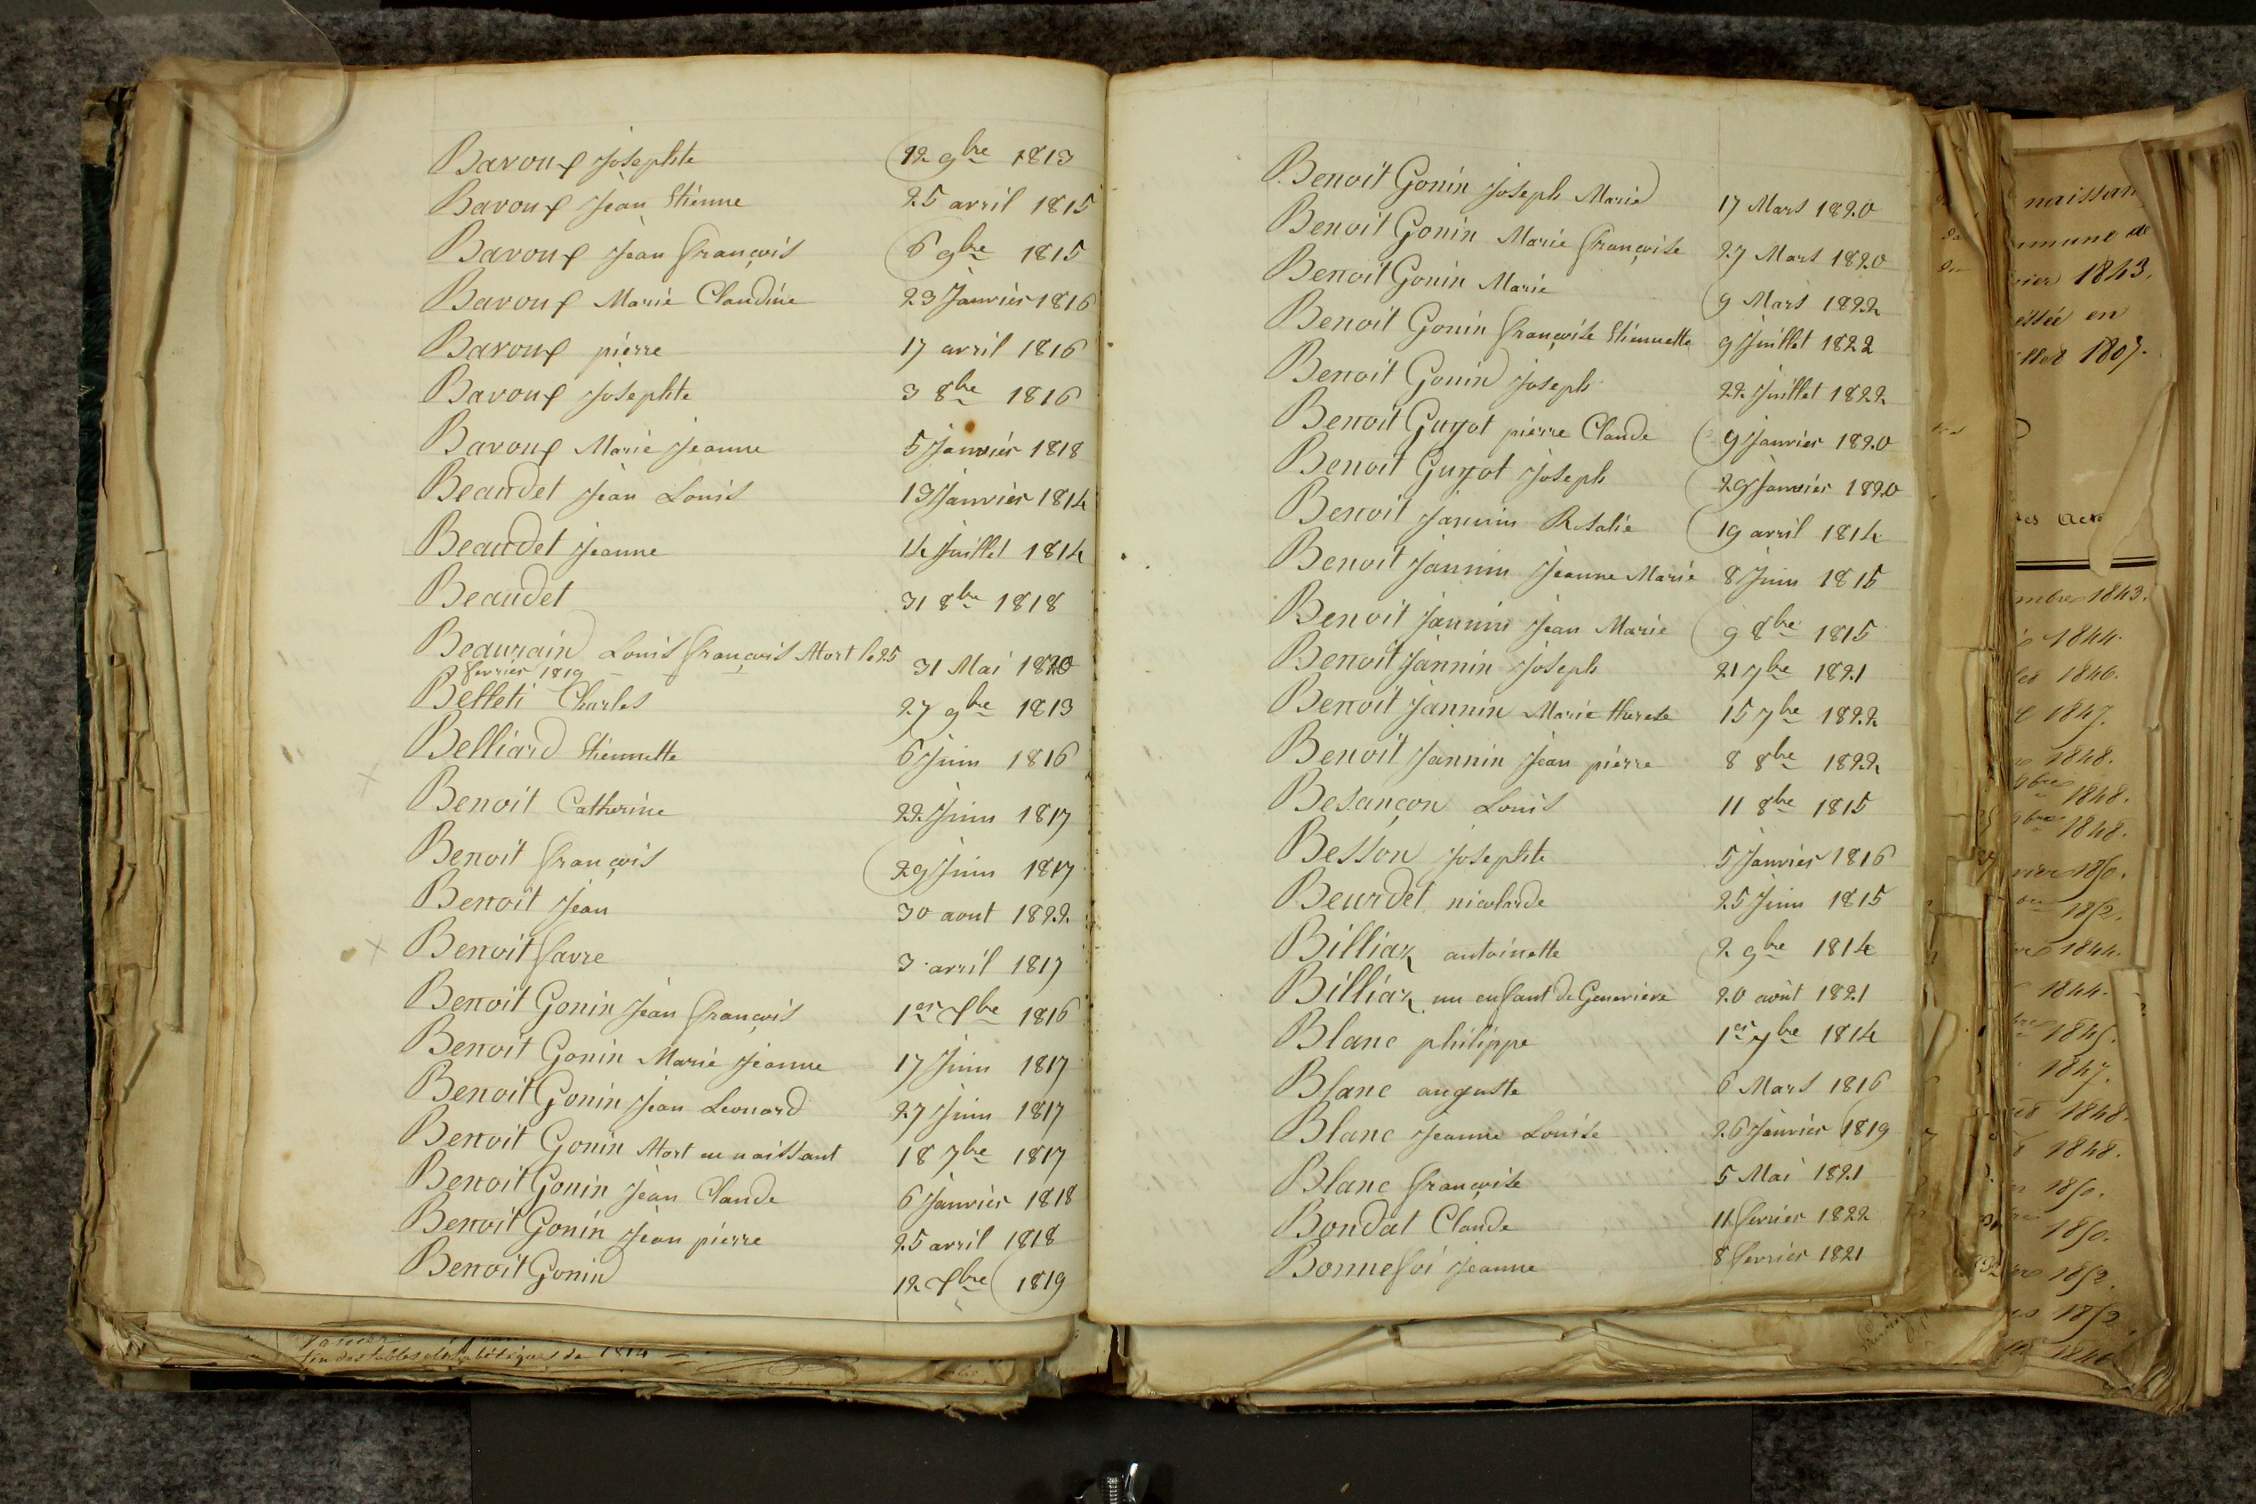 Bavoux Josephte 12 9bre 1813
Bavoux Jean Etienne 25 avril 1815
Bavoux Jean François 6 9bre 1815
Bavoux Marie Claudine 23 Janvier 1816
Bavoux pierre 17 avril 1816
Bavoux Josephte 3 8bre 1816
Bavoux Marie Jeanne 5 Janvier 1818
Beaudet Jean Louis 13 Janvier 1814
Beaudet Jeanne 14 Juillet 1814
Beaudet 31 8bre 1818
Beaurain Louis François Mort le 25 31 Mai 1820
fevrier 1819
Belleti Charles 27 9bre 1813
Belliard Etiennette 6 Juin 1816
Benoit Catherine 22 Juin 1817
Benoit François 29 Juin 1817
Benoit Jean 30 aout 1822
Benoit favre 3 avril 1817
Benoit Gonin Jean François 1er Xbre 1816
Benoit Gonin Marie Jeanne 17 Juin 1817
Benoit Gonin Jean Leonard 27 Juin 1817
Benoit Gonin Mort en naissant 18 7bre 1817
Benoit Gonin Jean Claude 6 Janvier 1818
Benoit Gonin Jean pierre 25 avril 1818
Benoit Gonin 12 Xbre 1819
Benoit Gonin Joseph Marie 17 Mars 1820
Benoit Gonin Marie Françoise 27 Mars 1820
Benoit Gonin Marie 9 Mars 1822
Benoit Gonin Françoise Etiennette 9 Juillet 1822
Benoit Gonin Joseph 22 Juillet 1822
Benoit Guyot pierre Claude 9 Janvier 1820
Benoit Guyot Joseph 29 Janvier 1820
Benoit Jannin Rosalie 19 avril 1814
Benoit Jannin Jeanne Marie 8 Juin 1815
Benoit Jannin Jean Marie 9 8bre 1815
Benoit Jannin Joseph 21 7bre 1821
Benoit Jannin Marie therese 15 7bre 1822
Benoit Jannin Jean pierre 8 8bre 1822
Besançon Louis 11 8bre 1815
Besson Josephte 5 Janvier 1816
Beurdet nicolarde 25 Juin 1815
Billiaz antoinette 2 9bre 1814
Billiaz un enfant de Genevieve 20 août 1821
Blanc philippe 1er 7bre 1814
Blanc auguste 6 Mars 1816
Blanc Jeanne Louise 26 Janvier 1819
Blanc Françoise 5 Mai 1821
Bondat Claude 11 fevrier 1822
Bonnefoi Jeanne 8 fevrier 1821